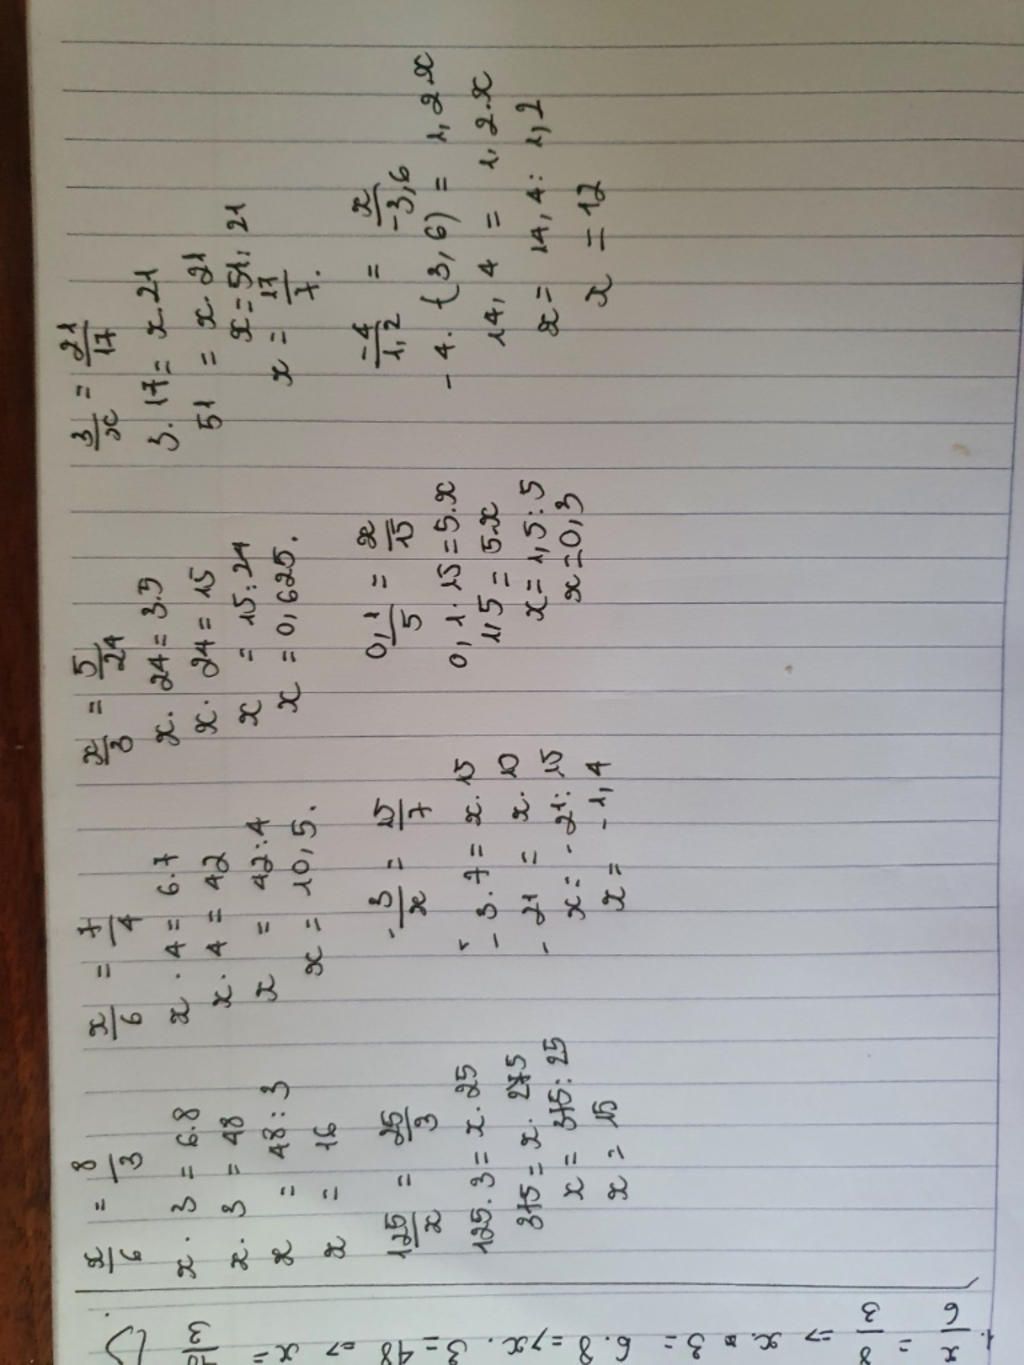 x/6 = 8/3
x . 3 = 6.8
x . 3 = 48
x = 48 : 3
x = 16
x/6 = 7/4
x . 4 = 6.7
x . 4 = 42
x = 42:4
x = 10,5.
x/3 = 5/24
x. 24 = 3.5
x. 24 = 15
x = 15:24
x = 0,625.
3/x = 21/17
3. 17 = x.21
51 = x.21
x = 51: 21
x = 17/7.
125/x = 25/3
125.3 = x.25
375 = x.
x = 375: 25
x = 15
- 3/x = 15/7
- 3.7 = x.15
- 21 = x.
x = - 21: 15
x = - 1,4
0,1/5 = x/15
0,1.15 = 5.x
1,5 = 5.x
x = 1,5:5
x = 0,3
-4/1,2 = x/-3,6
- 4. (3,6) = 1,2x
14,4 = 1,2.x
x = 14,4: 1,2
x = 12
1. x/6 = 8/3 => x.3 = 6.8 => x. 3 = 48 => x =